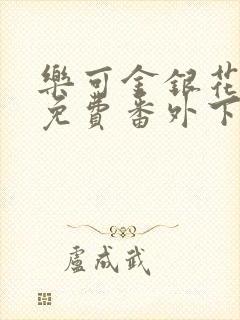 樂可金銀花
免費番外下
盧成武